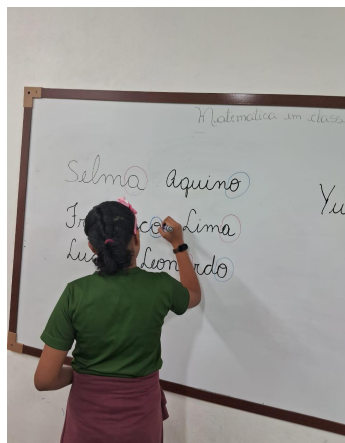 Matematica em class
Selma Aquino
Fr co Lima
Lu Leon rdo
Yu